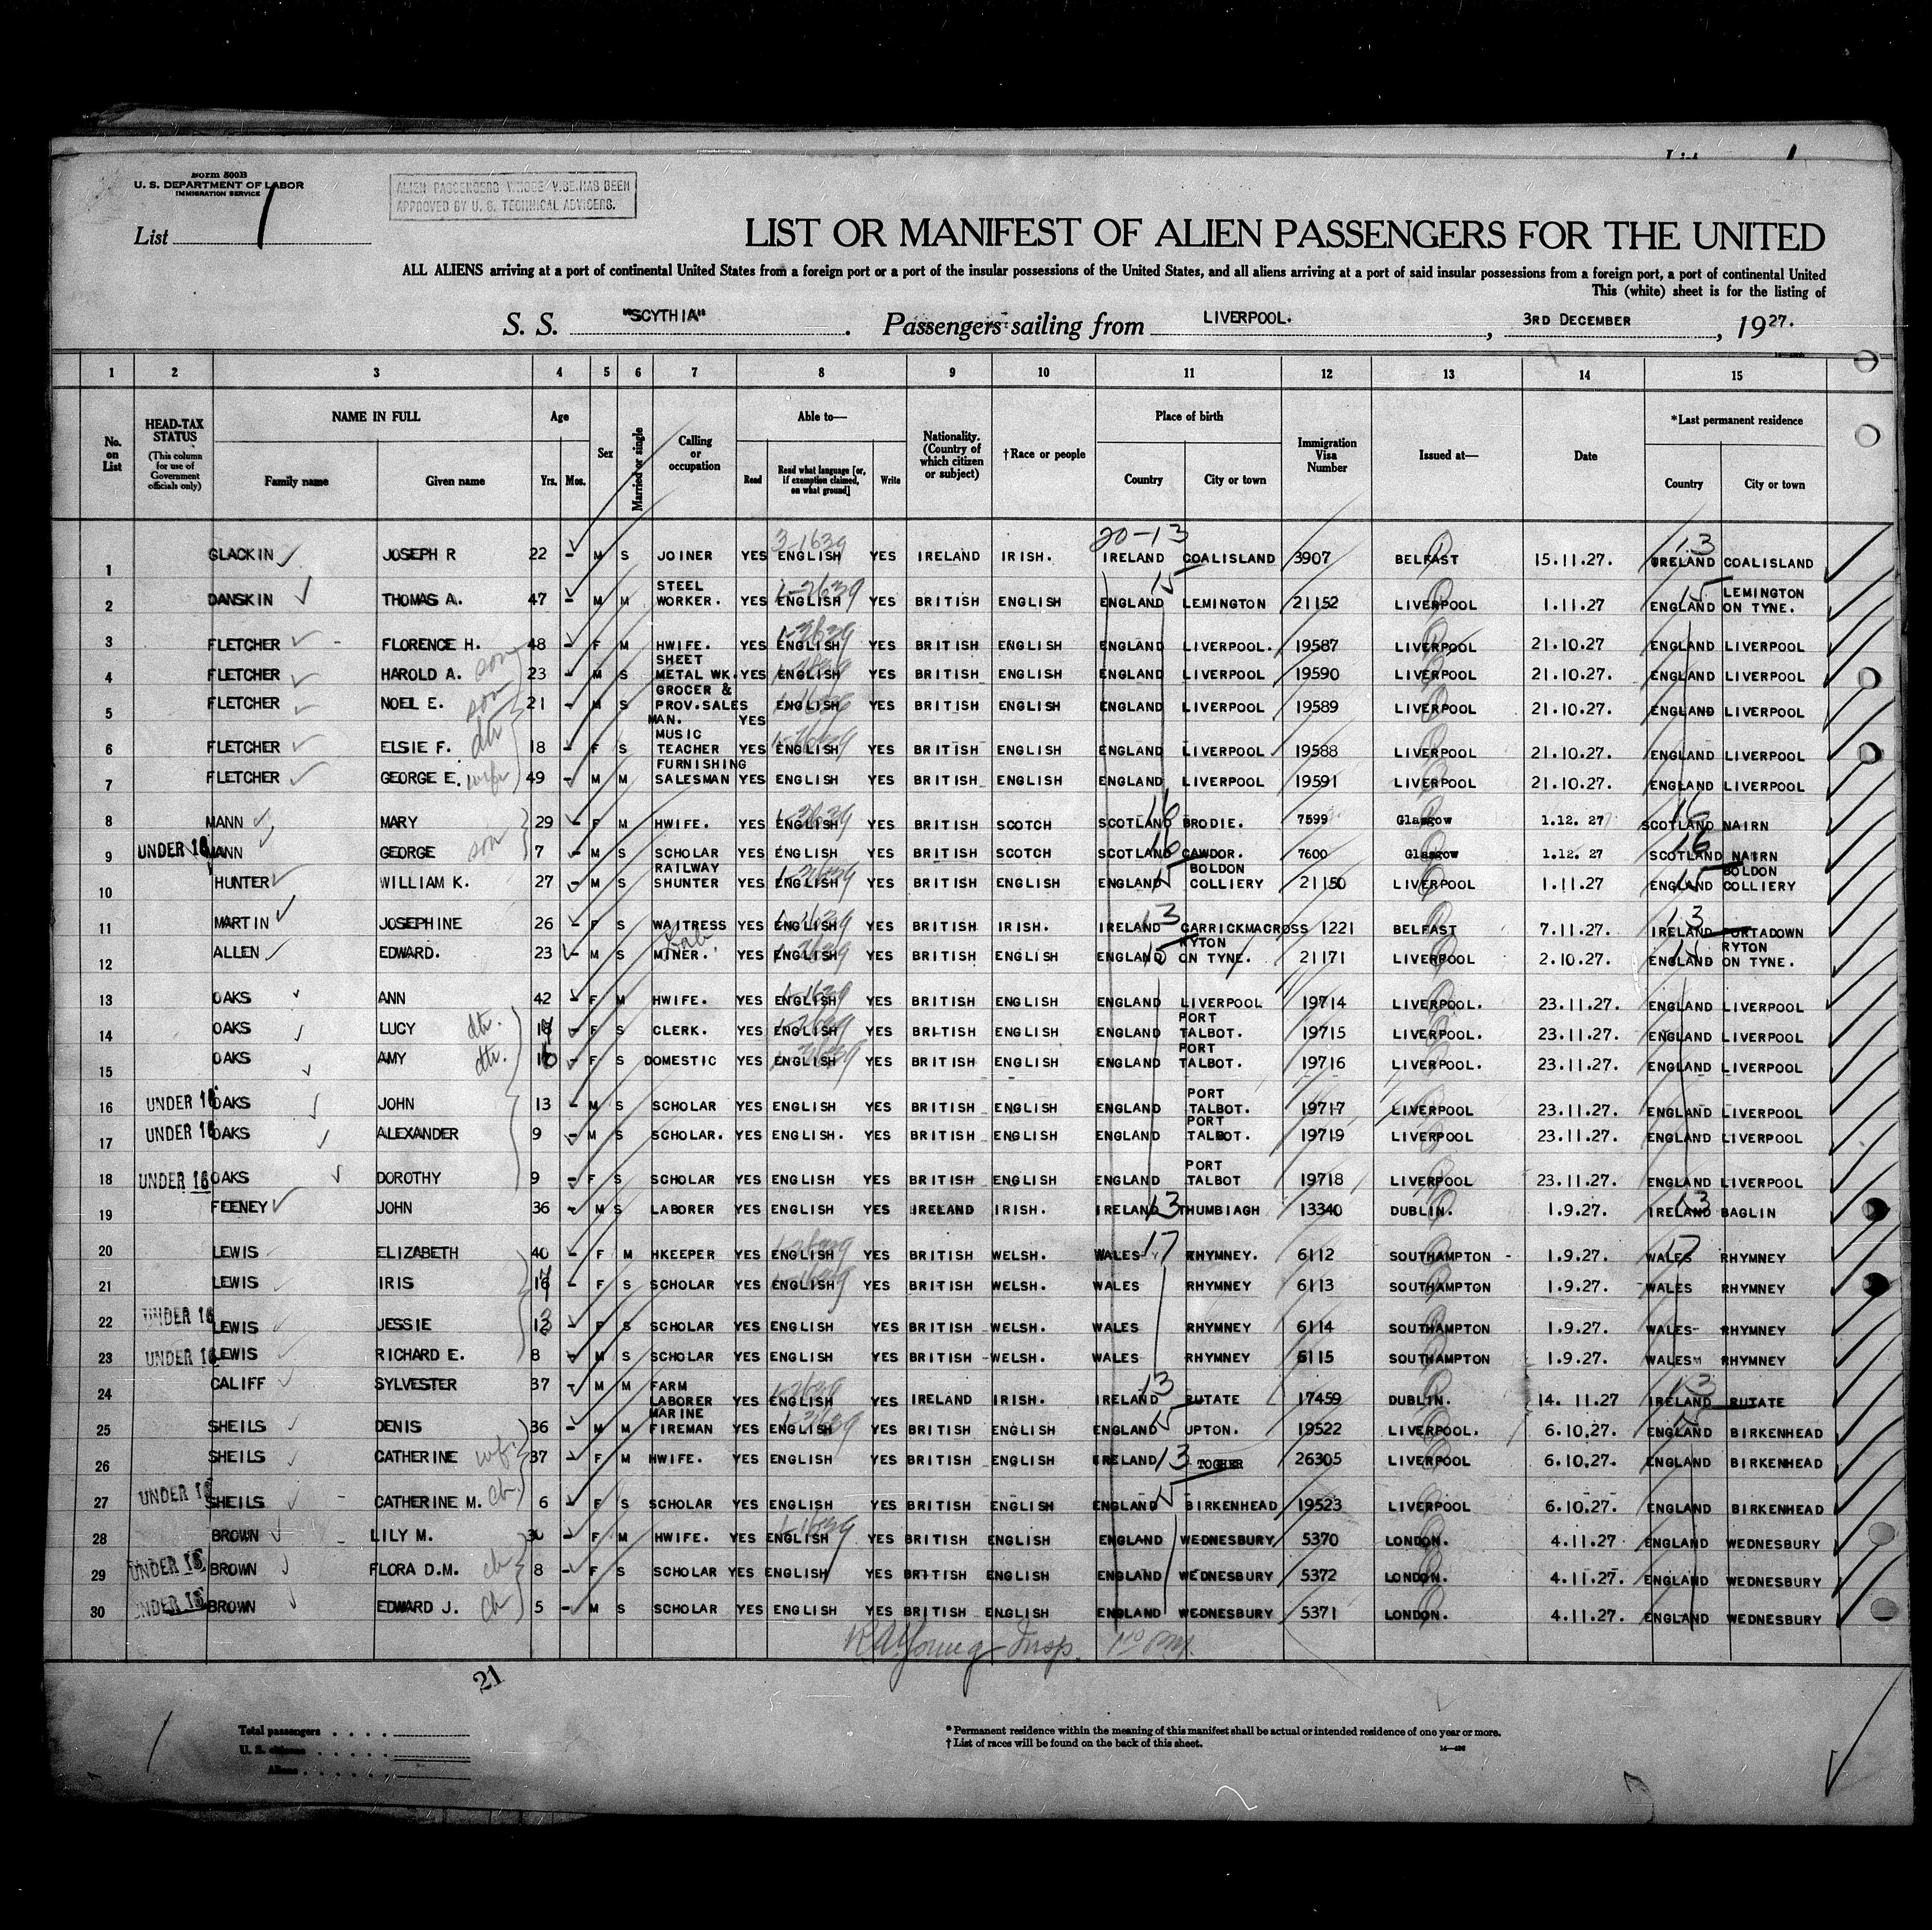 Form 500B
U. S. DEPARTMENT OF LABOR
IMMIGRATION SERVICE
ALIEN PASSENGERS WHOSE VISE HAS BEEN
APPROVED BY U. S. TECHNICAL ADVISERS.
List 1
LIST OR MANIFEST OF ALIEN PASSENGERS FOR THE UNITED
ALL ALIENS arriving at a port of continental United States from a foreign port or a port of the insular possessions of the United States, and all aliens arriving at a port of said insular possessions from a foreign port, a port of continental United
This (white) sheet is for the listing of
S. S. "SCYTHIA". Passengers sailing from LIVERPOOL., 3RD DECEMBER, 1927.
1 2 3 4 5 6 7 8 9 10 11 12 13 14 15
No. on List
HEAD-TAX STATUS (This column for use of Government officials only)
NAME IN FULL Family name Given name
Age Yrs. Mos.
Sex
Married or single
Calling or occupation
Able to— Read Read what language [or, if exemption claimed, on what ground] Write
Nationality. (Country of which citizen or subject)
†Race or people
Place of birth Country City or town
Immigration Visa Number
Issued at—
Date
*Last permanent residence Country City or town
1 GLACKIN JOSEPH R 22 - M S JOINER YES ENGLISH YES IRELAND IRISH. IRELAND COALISLAND 3907 BELFAST 15.11.27. IRELAND COALISLAND
2 DANSKIN THOMAS A. 47 - M M STEEL WORKER. YES ENGLISH YES BRITISH ENGLISH ENGLAND LEMINGTON 21152 LIVERPOOL 1.11.27 ENGLAND LEMINGTON ON TYNE.
3 FLETCHER - FLORENCE H. 48 - F M HWIFE. YES ENGLISH YES BRITISH ENGLISH ENGLAND LIVERPOOL. 19587 LIVERPOOL 21.10.27 ENGLAND LIVERPOOL
4 FLETCHER HAROLD A. son 23 - M S SHEET METAL WK. YES ENGLISH YES BRITISH ENGLISH ENGLAND LIVERPOOL 19590 LIVERPOOL 21.10.27. ENGLAND LIVERPOOL
5 FLETCHER NOEL E. son 21 - M S GROCER & PROV.SALES MAN. YES ENGLISH YES BRITISH ENGLISH ENGLAND LIVERPOOL 19589 LIVERPOOL 21.10.27. ENGLAND LIVERPOOL
6 FLETCHER ELSIE F. dtr 18 - F S MUSIC TEACHER YES ENGLISH YES BRITISH ENGLISH ENGLAND LIVERPOOL 19588 LIVERPOOL 21.10.27. ENGLAND LIVERPOOL
7 FLETCHER GEORGE E. 49 - M M FURNISHING SALESMAN YES ENGLISH YES BRITISH ENGLISH ENGLAND LIVERPOOL 19591 LIVERPOOL 21.10.27. ENGLAND LIVERPOOL
8 MANN MARY 29 - F M HWIFE. YES ENGLISH YES BRITISH SCOTCH SCOTLAND BRODIE. 7599 Glasgow 1.12. 27 SCOTLAND NAIRN
9 UNDER 16 MANN GEORGE son 7 - M S SCHOLAR YES ENGLISH YES BRITISH SCOTCH SCOTLAND CAWDOR. 7600 Glasgow 1.12. 27 SCOTLAND NAIRN
10 HUNTER WILLIAM K. 27 - M S RAILWAY SHUNTER YES ENGLISH YES BRITISH ENGLISH ENGLAND BOLDON COLLIERY 21150 LIVERPOOL 1.11.27 ENGLAND BOLDON COLLIERY
11 MARTIN JOSEPHINE 26 - F S WAITRESS YES ENGLISH YES BRITISH IRISH. IRELAND CARRICKMACROSS 1221 BELFAST 7.11.27. IRELAND PORTADOWN
12 ALLEN EDWARD. 23 - M S MINER. YES ENGLISH YES BRITISH ENGLISH ENGLAND RYTON ON TYNE. 21171 LIVERPOOL 2.10.27. ENGLAND RYTON ON TYNE.
13 OAKS ANN 42 - F M HWIFE. YES ENGLISH YES BRITISH ENGLISH ENGLAND LIVERPOOL 19714 LIVERPOOL. 23.11.27. ENGLAND LIVERPOOL
14 OAKS LUCY dtr. - F S CLERK. YES ENGLISH YES BRITISH ENGLISH ENGLAND PORT TALBOT. 19715 LIVERPOOL. 23.11.27. ENGLAND LIVERPOOL
15 OAKS AMY dtr. 16 - F S DOMESTIC YES ENGLISH YES BRITISH ENGLISH ENGLAND PORT TALBOT. 19716 LIVERPOOL. 23.11.27. ENGLAND LIVERPOOL
16 UNDER 16 OAKS JOHN 13 - M S SCHOLAR YES ENGLISH YES BRITISH ENGLISH ENGLAND PORT TALBOT. 19717 LIVERPOOL 23.11.27. ENGLAND LIVERPOOL
17 UNDER 16 OAKS ALEXANDER 9 - M S SCHOLAR. YES ENGLISH. YES BRITISH ENGLISH ENGLAND PORT TALBOT. 19719 LIVERPOOL 23.11.27. ENGLAND LIVERPOOL
18 UNDER 16 OAKS DOROTHY 9 - F S SCHOLAR YES ENGLISH YES BRITISH ENGLISH ENGLAND PORT TALBOT 19718 LIVERPOOL 23.11.27. ENGLAND LIVERPOOL
19 FEENEY JOHN 36 - M S LABORER YES ENGLISH YES IRELAND IRISH. IRELAND THUMBIAGH 13340 DUBLIN. 1.9.27. IRELAND BAGLIN
20 LEWIS ELIZABETH 40 - F M HKEEPER YES ENGLISH YES BRITISH WELSH. WALES RHYMNEY. 6112 SOUTHAMPTON - 1.9.27. WALES RHYMNEY
21 LEWIS IRIS - F S SCHOLAR YES ENGLISH YES BRITISH WELSH. WALES RHYMNEY 6113 SOUTHAMPTON 1.9.27. WALES RHYMNEY
22 UNDER 16 LEWIS JESSIE - F S SCHOLAR YES ENGLISH YES BRITISH WELSH. WALES RHYMNEY 6114 SOUTHAMPTON 1.9.27. WALES RHYMNEY
23 UNDER 16 LEWIS RICHARD E. 8 - M S SCHOLAR YES ENGLISH YES BRITISH WELSH. WALES RHYMNEY 6115 SOUTHAMPTON 1.9.27. WALES RHYMNEY
24 CALIFF SYLVESTER 37 - M M FARM LABORER YES ENGLISH YES IRELAND IRISH. IRELAND RUTATE 17459 DUBLIN. 14. 11.27 IRELAND RUTATE
25 SHEILS DENIS 36 - M M MARINE FIREMAN YES ENGLISH YES BRITISH ENGLISH ENGLAND UPTON. 19522 LIVERPOOL. 6.10.27. ENGLAND BIRKENHEAD
26 SHEILS CATHERINE wf. 37 - F M HWIFE. YES ENGLISH YES BRITISH ENGLISH IRELAND TOGHER 26305 LIVERPOOL 6.10.27. ENGLAND BIRKENHEAD
27 UNDER 16 SHEILS - CATHERINE M. ch. 6 - F S SCHOLAR YES ENGLISH YES BRITISH ENGLISH ENGLAND BIRKENHEAD 19523 LIVERPOOL 6.10.27. ENGLAND BIRKENHEAD
28 BROWN LILY M. 30 - F M HWIFE. YES ENGLISH YES BRITISH ENGLISH ENGLAND WEDNESBURY 5370 LONDON. 4.11.27 ENGLAND WEDNESBURY
29 UNDER 16 BROWN FLORA D.M. ch 8 - F S SCHOLAR YES ENGLISH YES BRITISH ENGLISH ENGLAND WEDNESBURY 5372 LONDON. 4.11.27. ENGLAND WEDNESBURY
30 UNDER 16 BROWN EDWARD J. ch 5 - M S SCHOLAR YES ENGLISH YES BRITISH ENGLISH ENGLAND WEDNESBURY 5371 LONDON. 4.11.27. ENGLAND WEDNESBURY
Young Insp.
21
Total passengers
U. S. citizens
Aliens
* Permanent residence within the meaning of this manifest shall be actual or intended residence of one year or more.
† List of races will be found on the back of this sheet.